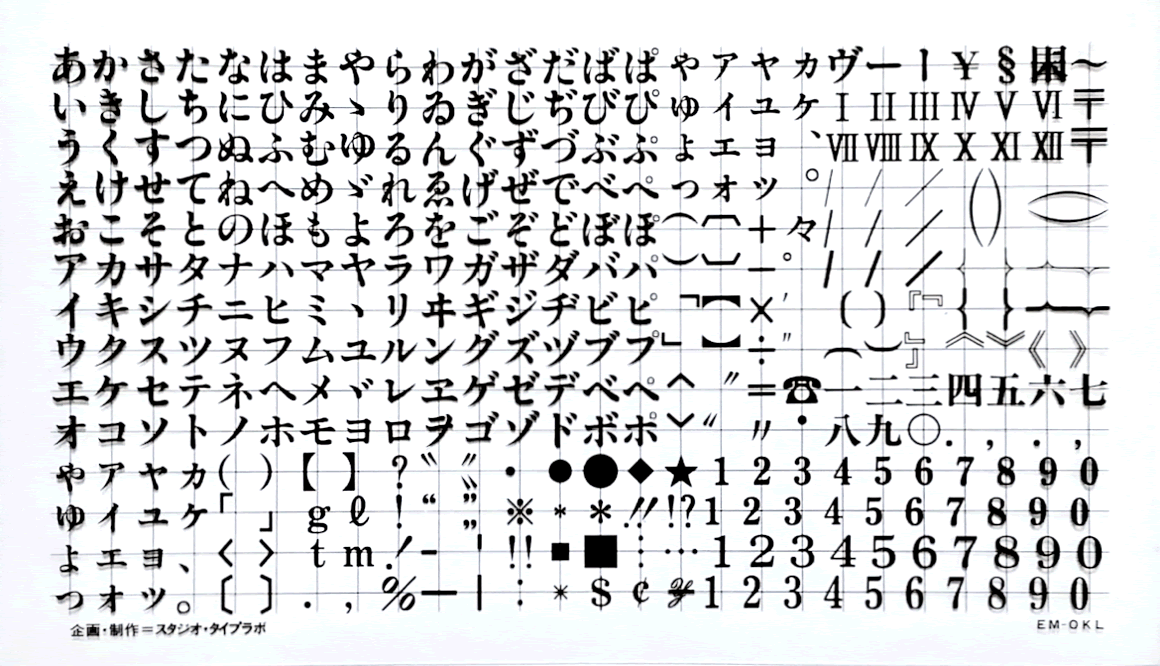 あかさたなはまやらわがざだばぱゃァャヵヴー｜¥§困〜
いきしちにひみゝりゐぎじぢびぴゅィュヶⅠⅡⅢⅣⅤⅥ〒
うくすつぬふむゆるんぐずづぶぷょェョ、ⅦⅧⅨⅩⅪⅫ〒
えけせてねへめゞれゑげぜでべぺっォッ。///()⏜⏝
おこそとのほもよろをごぞどぼぽ⏜︹+々///
アカサタナハマヤラワガザダバパ⏝︺−°///{}︷︸
イキシチニヒミヽリヰギジヂビピ﹁︻×′()『﹃{}︷︸
ウクスツヌフムユルングズヅブプ﹂︼÷″⏜⏝』﹄︽︾《》
エケセテネヘメヾレヱゲゼデベペ︿〃=☎一二三四五六七
オコソトノホモヨロヲゴゾドボポ﹀〃〃・八九〇.,.,
ゃァャヵ()【】?〝〟・●●◆★1234567890
ゅィュヶ「」gℓ!“”※**!!!?1234567890
ょェョ、〈〉tm!-|!!■■⋮…1234567890
っォッ。〔〕.,%—|:*$¢¥1234567890
企画・制作=スタジオ・タイプラボ
EM-OKL